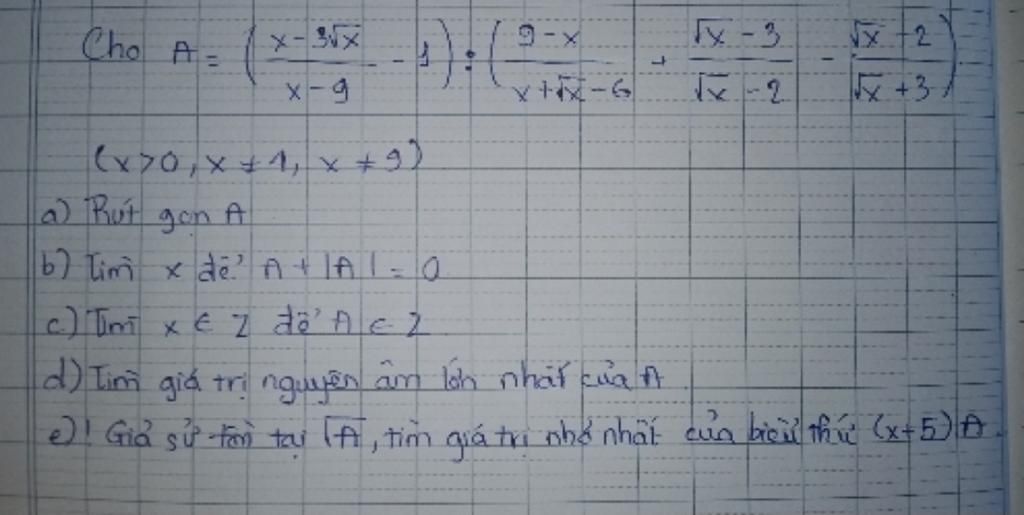 Cho A = ( (x - 3√x)/(x - 9) - 1 ) : ( (9 - x)/(x + √x - 6) + (√x - 3)/(√x - 2) - (√x + 2)/(√x + 3) )
(x > 0, x ≠ 1, x ≠ 9)
a) Rút gọn A
b) Tìm x để A + |A| = 0
c) Tìm x ∈ Z để A ∈ Z
d) Tìm giá trị nguyên âm lớn nhất của A.
e)! Giả sử tồn tại √A, tìm giá trị nhỏ nhất của biểu thức (x+5)A.